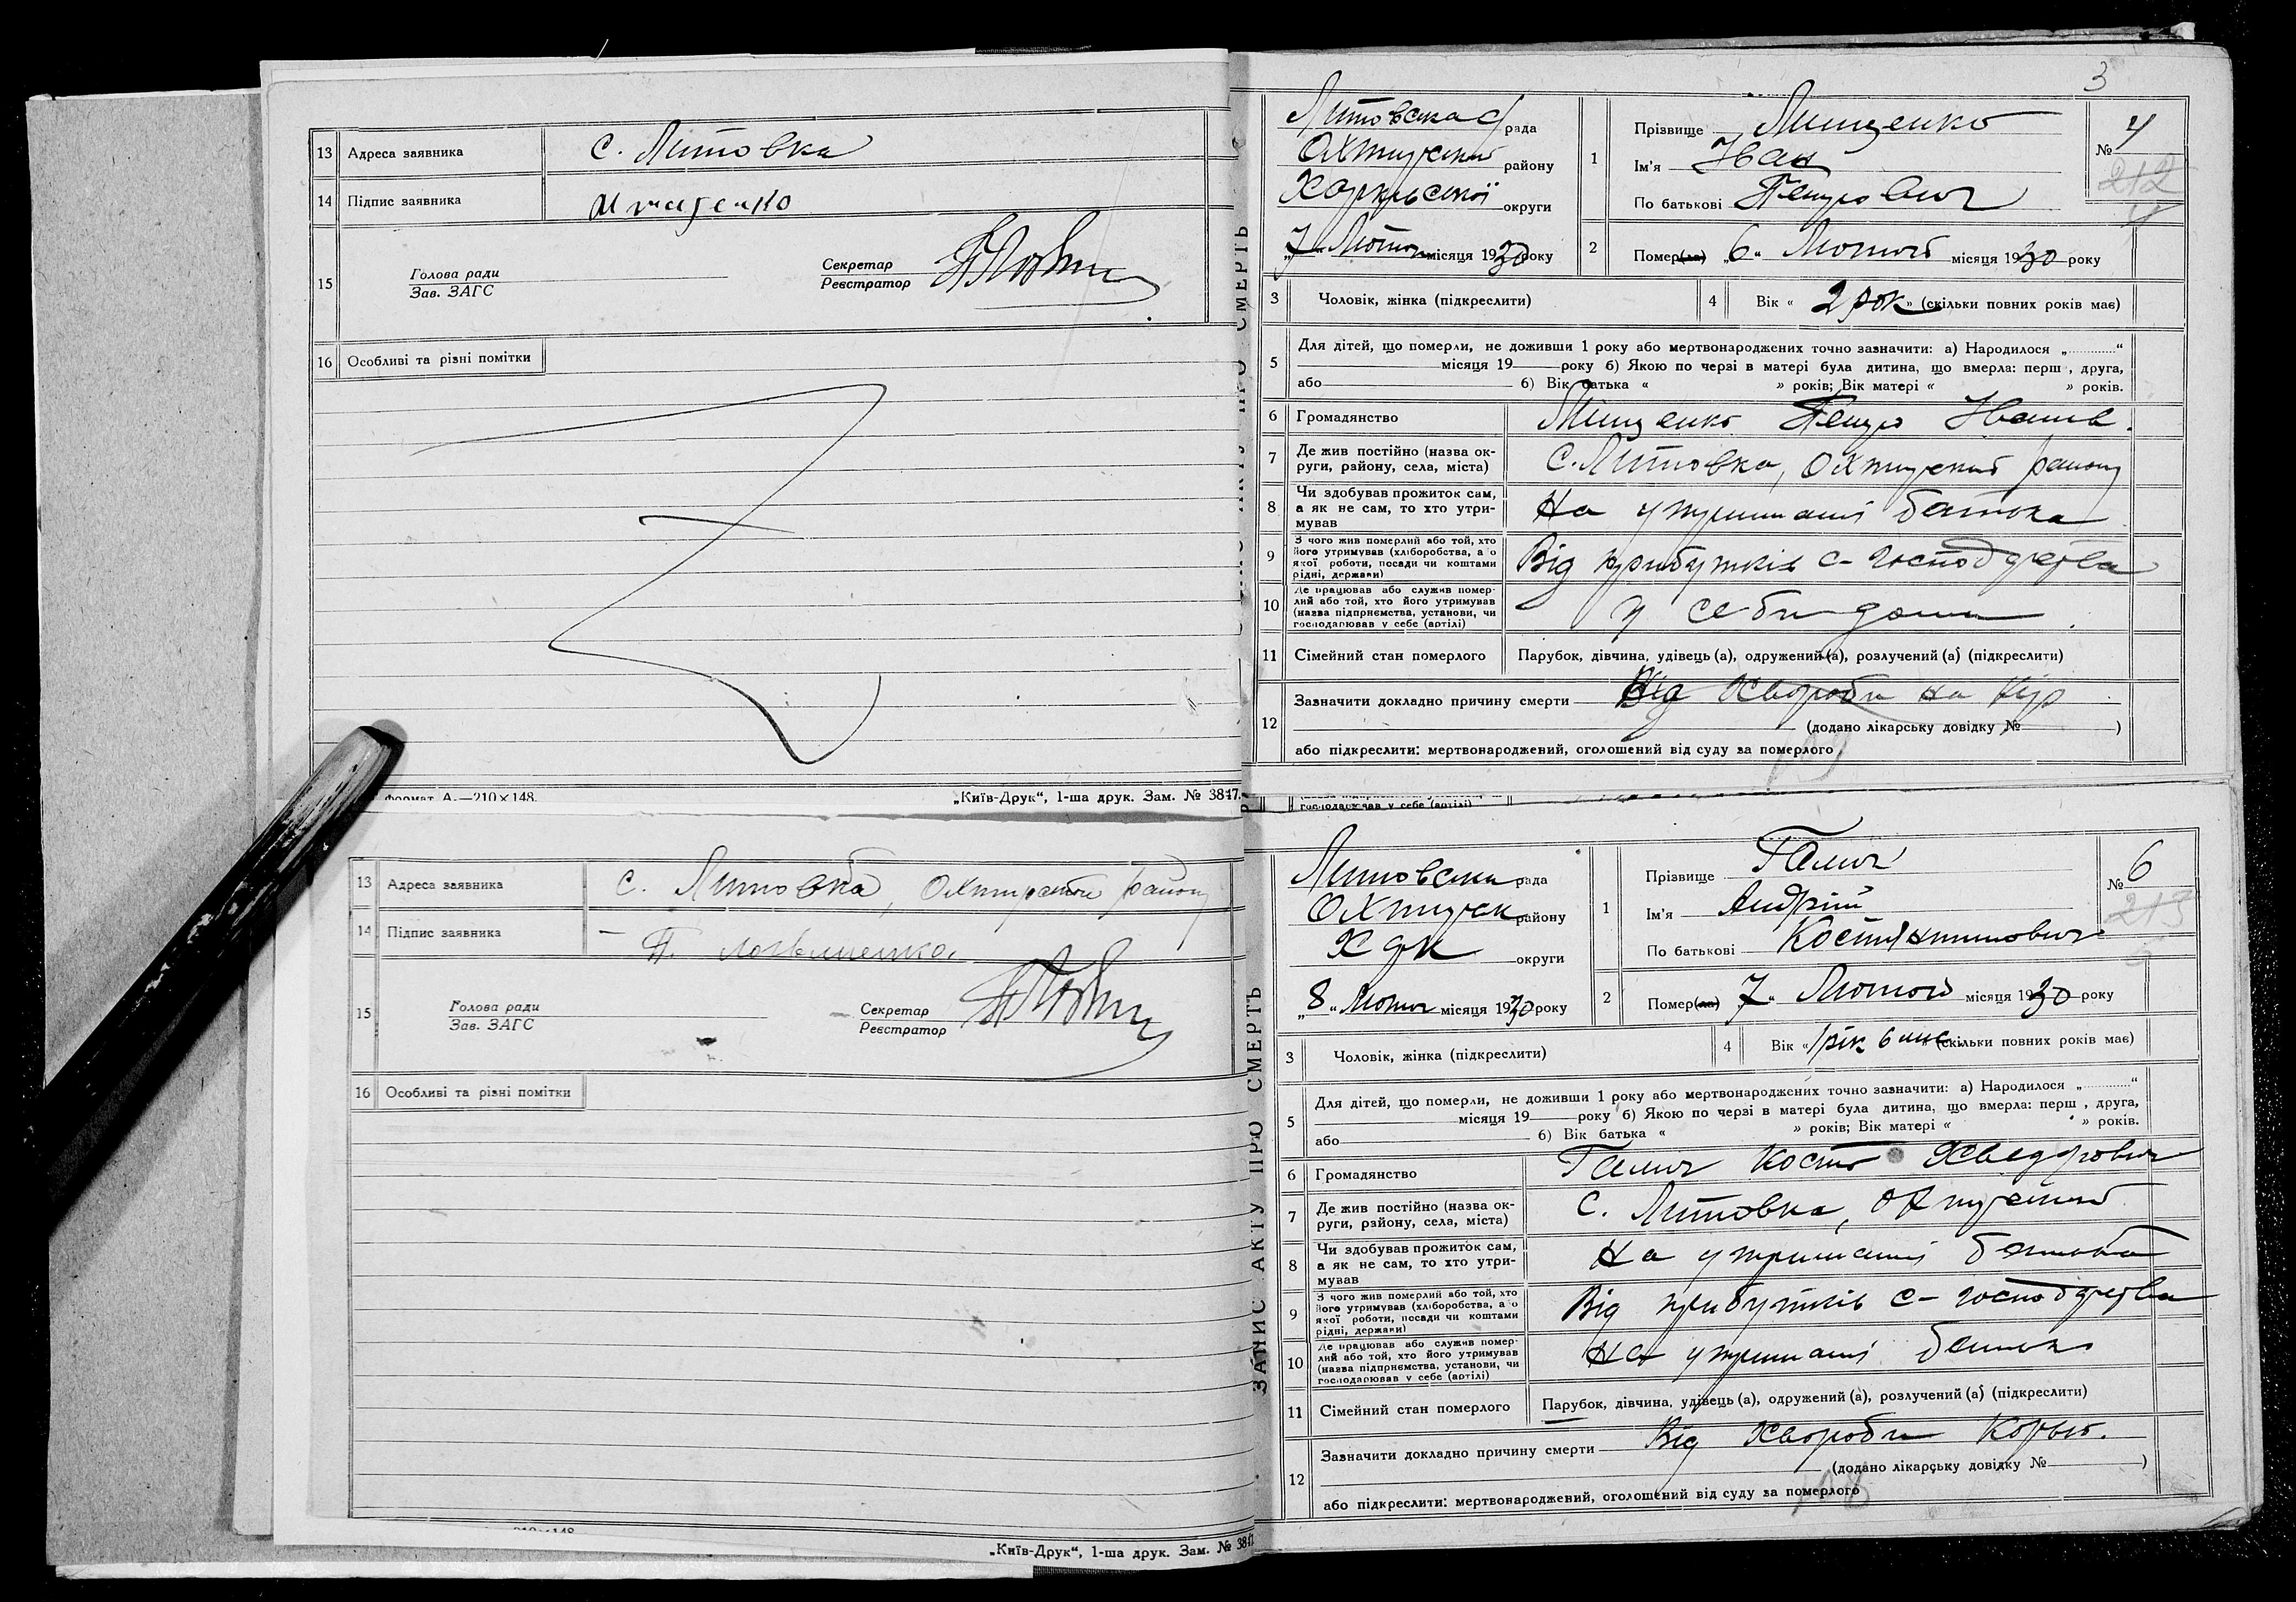 13 Адреса заявника с. Литовка
14 Підпис заявника
15 Голова ради
Зав. ЗАГС
Секретар
Реєстратор
16 Особливі та різні помітки
Формат А.—210×148.
„Київ-Друк“, 1-ша друк. Зам. № 3847.
3
Литовська с/рада
району
округи
„7“ Лютого місяця 1930 року
1 Прізвище Мищенко
Ім'я Іван
По батькові Петрович
№ 4
212
2 Помер(ла) „6“ Лютого місяця 1930 року
3 Чоловік, жінка (підкреслити)
4 Вік « 2 рок » (скільки повних років має)
5 Для дітей, що померли, не доживши 1 року або мертвонароджених точно зазначити: а) Народилося „ “
місяця 19 року б) Якою по черзі в матері була дитина, що вмерла: перш , друга,
або б) Вік батька « » років; Вік матері « » років.
6 Громадянство Мищенко Петро Іванов.
7 Де жив постійно (назва ок-
руги, району, села, міста) с. Литовка, району
8 Чи здобував прожиток сам,
а як не сам, то хто утри-
мував На утриманні батька
9 З чого жив померлий або той, хто
його утримував (хліборобства, а о
якої роботи, посади чи коштами
рідні, держави) Від прибутків с-господарства
10 Де працював або служив помер-
лий або той, хто його утримував
(назва підприємства, установи, чи
господарював у себе (артілі) у себи дома
11 Сімейний стан померлого Парубок, дівчина, удівець (а), одружений (а), розлучений (а) (підкреслити)
12 Зазначити докладно причину смерти Від хвороби на Кір
(додано лікарську довідку № )
або підкреслити: мертвонароджений, оголошений від суду за померлого
господарював у себе (артілі)
ЗАПИС АКТУ ПРО СМЕРТЬ
13 Адреса заявника с. Литовка, району
14 Підпис заявника
15 Голова ради
Зав. ЗАГС
Секретар
Реєстратор
16 Особливі та різні помітки
210×148
„Київ-Друк“, 1-ша друк. Зам. № 3847
Литовська рада
Охтирськ району
Харк округи
„8“ Лютого місяця 1930 року
1 Прізвище Галич
Ім'я Андрій
По батькові Костянтинович
№ 6
213
2 Помер(ла) 7“ Лютого місяця 1930 року
3 Чоловік, жінка (підкреслити)
4 Вік « 1 рік 6 міс (скільки повних років має)
5 Для дітей, що померли, не доживши 1 року або мертвонароджених точно зазначити: а) Народилося „ “
місяця 19 року б) Якою по черзі в матері була дитина, що вмерла: перш , друга,
або б) Вік батька « » років; Вік матері « » років.
6 Громадянство Галич Хведорович
7 Де жив постійно (назва ок-
руги, району, села, міста) с. Литовка,
8 Чи здобував прожиток сам,
а як не сам, то хто утри-
мував На утриманні батька
9 З чого жив померлий або той, хто
його утримував (хліборобства, а о
якої роботи, посади чи коштами
рідні, держави) Від прибутків с-господарства
10 Де працював або служив помер-
лий або той, хто його утримував
(назва підприємства, установи, чи
господарював у себе (артілі) На утриманні батька
11 Сімейний стан померлого Парубок, дівчина, удівець (а), одружений (а), розлучений (а) (підкреслити)
12 Зазначити докладно причину смерти Від хвороби
(додано лікарську довідку № )
або підкреслити: мертвонароджений, оголошений від суду за померлого